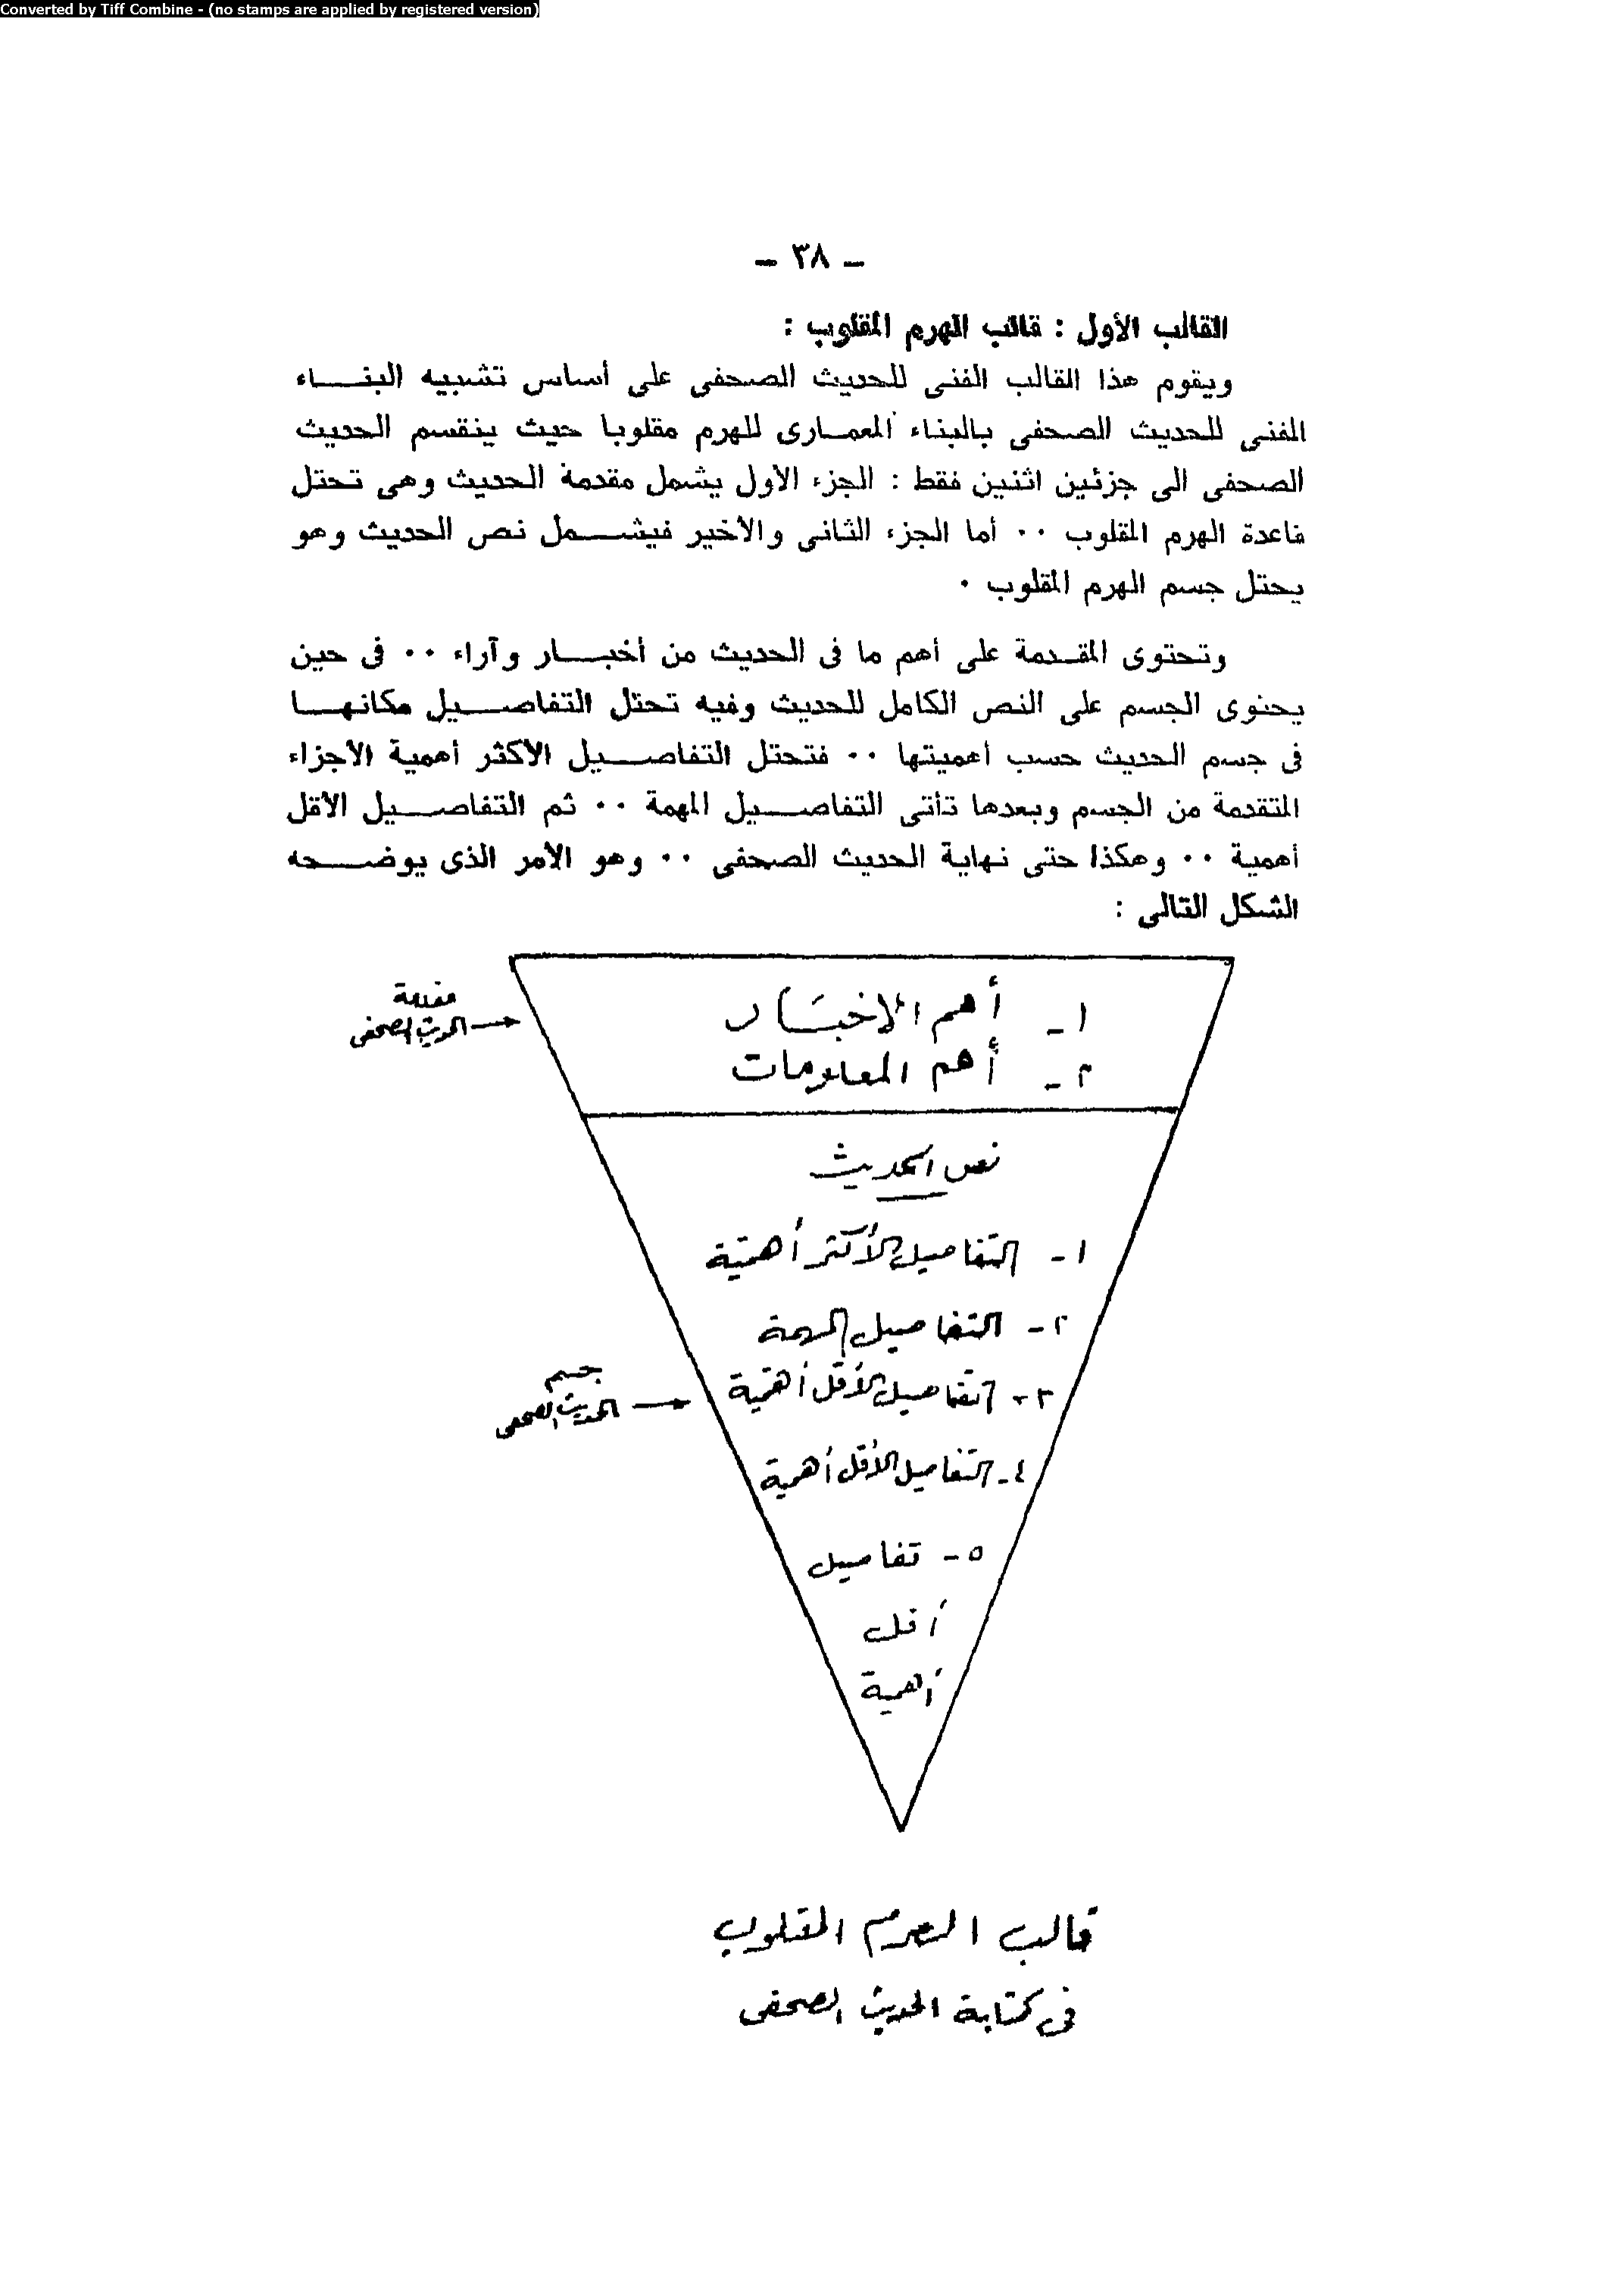 Converted by Tiff Combine - (no stamps are applied by registered version)
– ٣٨ –
القالب الأول : قالب الهرم المقلوب :
ويقوم هذا القالب الفنى للحديث الصحفى على أساس تشبيه البنـــاء
الفنى للحديث الصحفى بالبناء المعمـارى للهرم مقلوبا حيث ينقسم الحديث
الصحفى الى جزئين اثنين فقط : الجزء الأول يشمل مقدمة الحديث وهى تحتل
قاعدة الهرم المقلوب ٠٠ أما الجزء الثانى والأخير فيشـــمل نص الحديث وهو
يحتل جسم الهرم المقلوب ٠
وتحتوى المقـدمة على أهم ما فى الحديث من أخبـــار وآراء ٠٠ فى حين
يحتوى الجسم على النص الكامل للحديث وفيه تحتل التفاصـــيل مكانهـــا
فى جسم الحديث حسب أهميتها ٠٠ فتحتل التفاصـــيل الأكثر أهمية الأجزاء
المتقدمة من الجسم وبعدها تأتى التفاصـــيل المهمة ٠٠ ثم التفاصـــيل الأقل
أهمية ٠٠ وهكذا حتى نهاية الحديث الصحفى ٠٠ وهو الأمر الذى يوضـــحه
الشكل التالى :
١ـ أهم الاخبَـار
مقدمة
الحديث الصحفى
٢ـ أهم المعلومات
نص الحديث
١- التفاصيل الأكثر أهمية
٢- التفاصيل المهمة
جسم
الحديث الصحفى
٣- التفاصيل الأقل أهمية
٤- التفاصيل الأقل أهمية
٥- تفاصيل
أقل
أهمية
قالب الهرم المقلوب
فى كتابة الحديث الصحفى